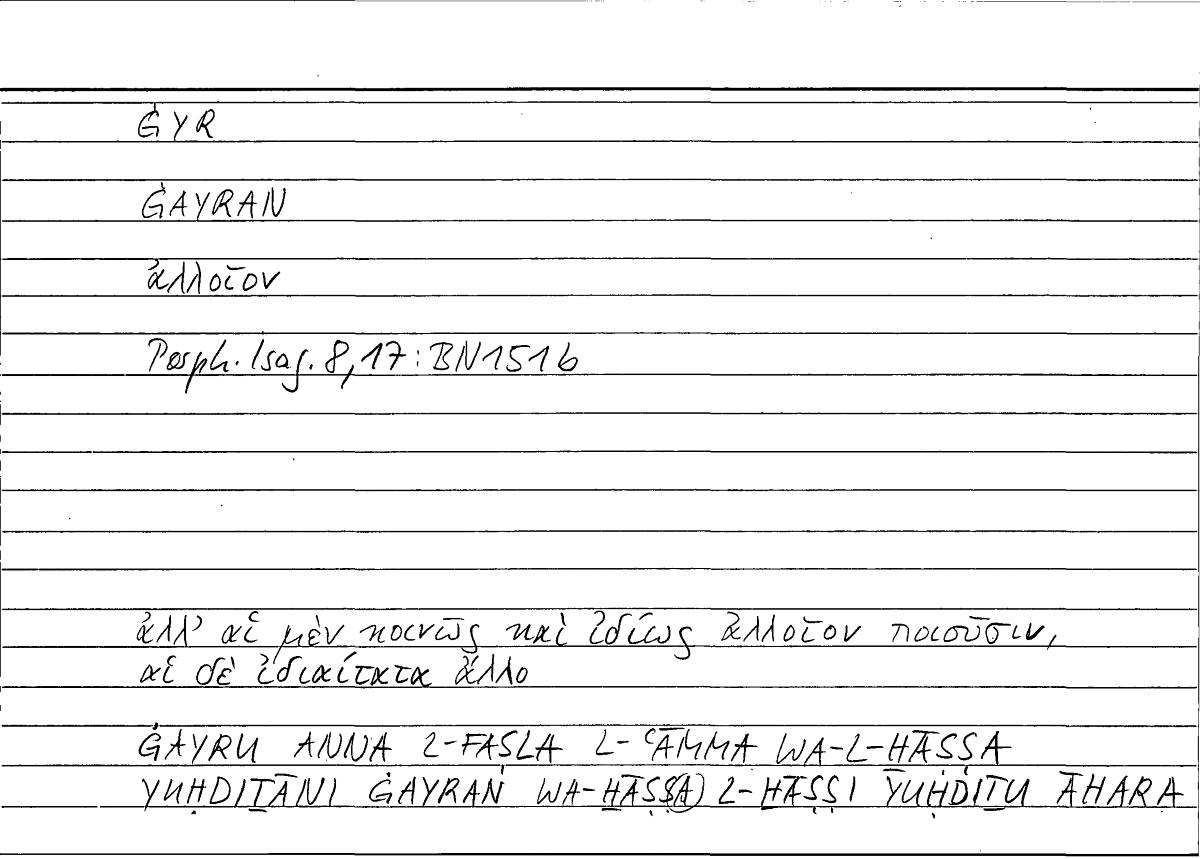 ĠYR
ĠAYRAN
ἀλλοῖον
Porph. Isag. 8,17 : BN151b
ἀλλ' αἱ μὲν κοινῶς καὶ ἰδίως ἀλλοῖον ποιοῦσιν,
αἱ δὲ ἰδιαίτατα ἄλλο
ĠAYRU ANNA L-FAṢLA L-ʿĀMMA WA-L-ḪĀṢṢA
YUḤDIṮĀNI ĠAYRAN WA-ḪĀṢṢ(A) L-ḪĀṢṢI YUḤDIṮU ĀḪARA